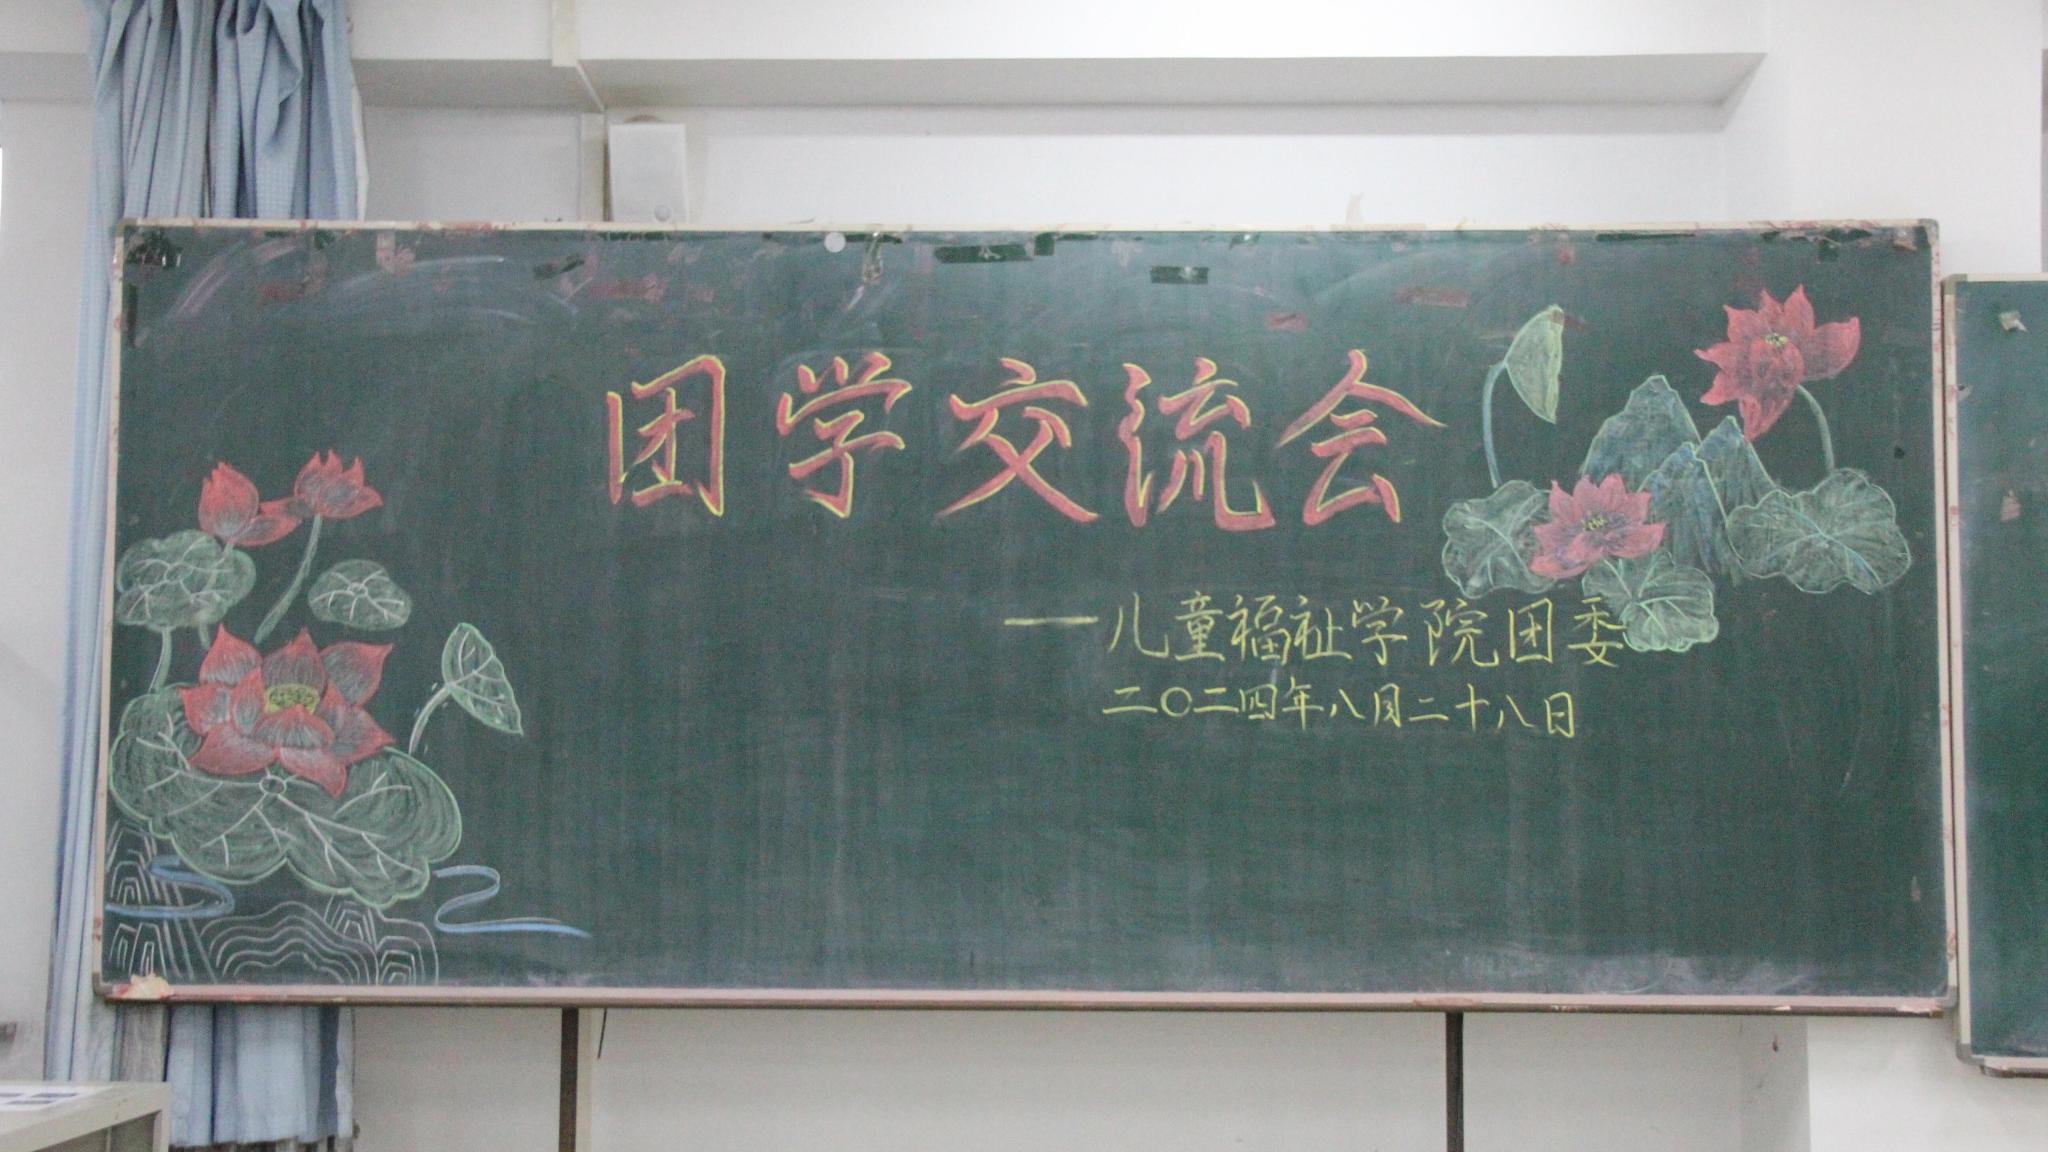 团学交流会
——儿童福祉学院团委
二〇二四年八月二十八日